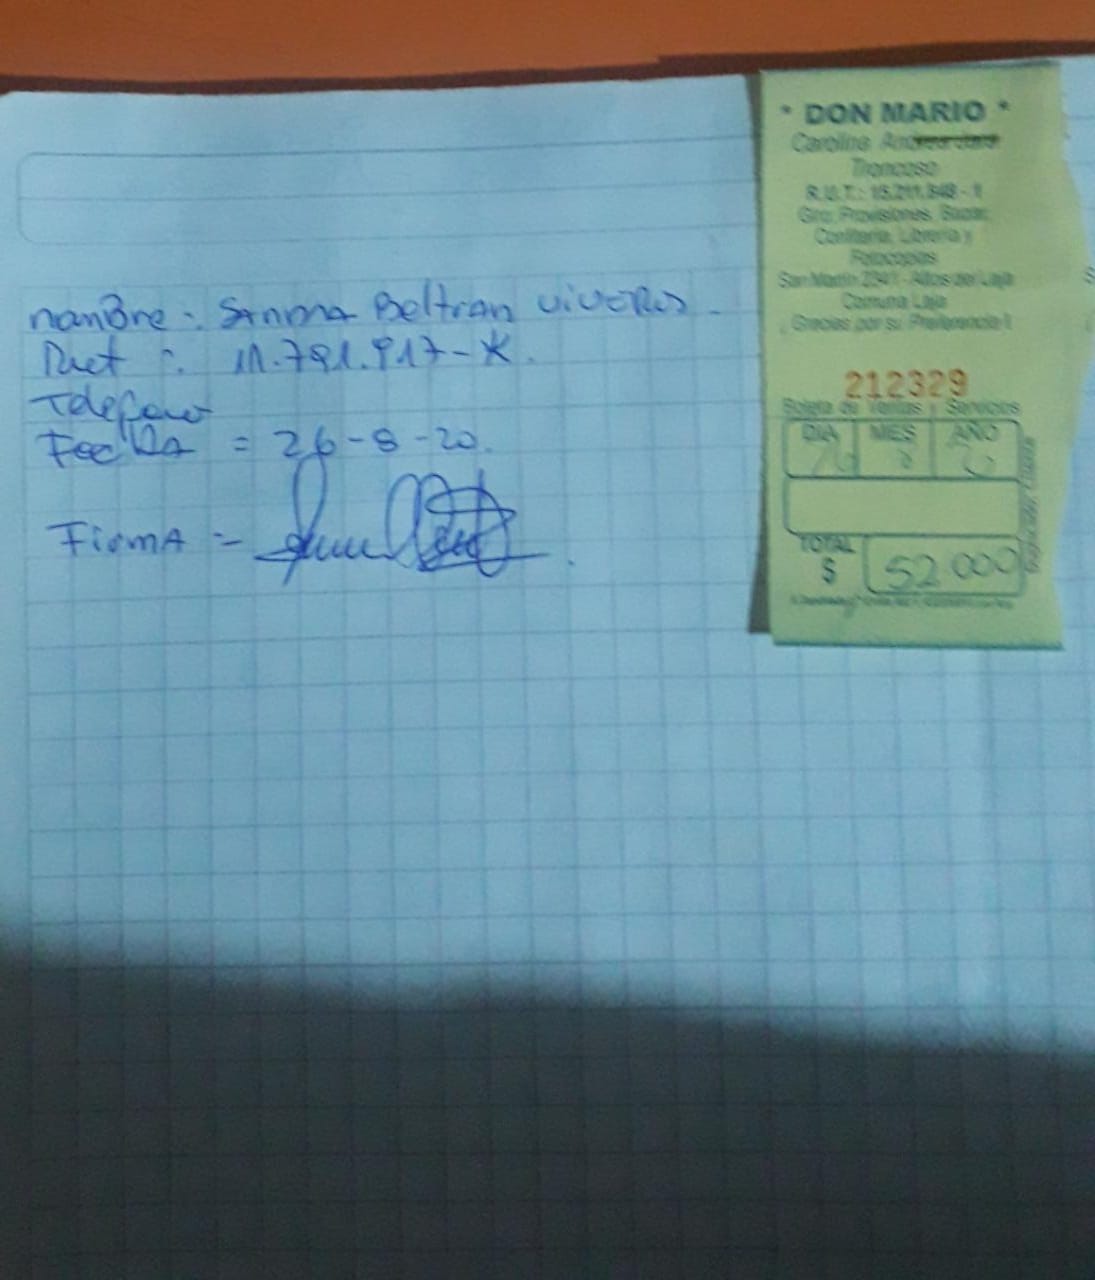 nomBre : Sandra Beltran ViveRos
Rut : 11.791.917-K.
Telefono
Fecha = 26-8-20.
Firma =
* DON MARIO *
Carolina Andrea Jara
Troncoso
R.U.T.: 15.211.848 - 1
Giro: Provisiones, Bazar,
Confitería, Librería y
Fotocopias
San Martín 2341 - Altos del Laja
Comuna Laja
¡ Gracias por su Preferencia !
212329
Boleta de Ventas y Servicios
DIA MES AÑO
26 8 20
TOTAL
$ 52.000